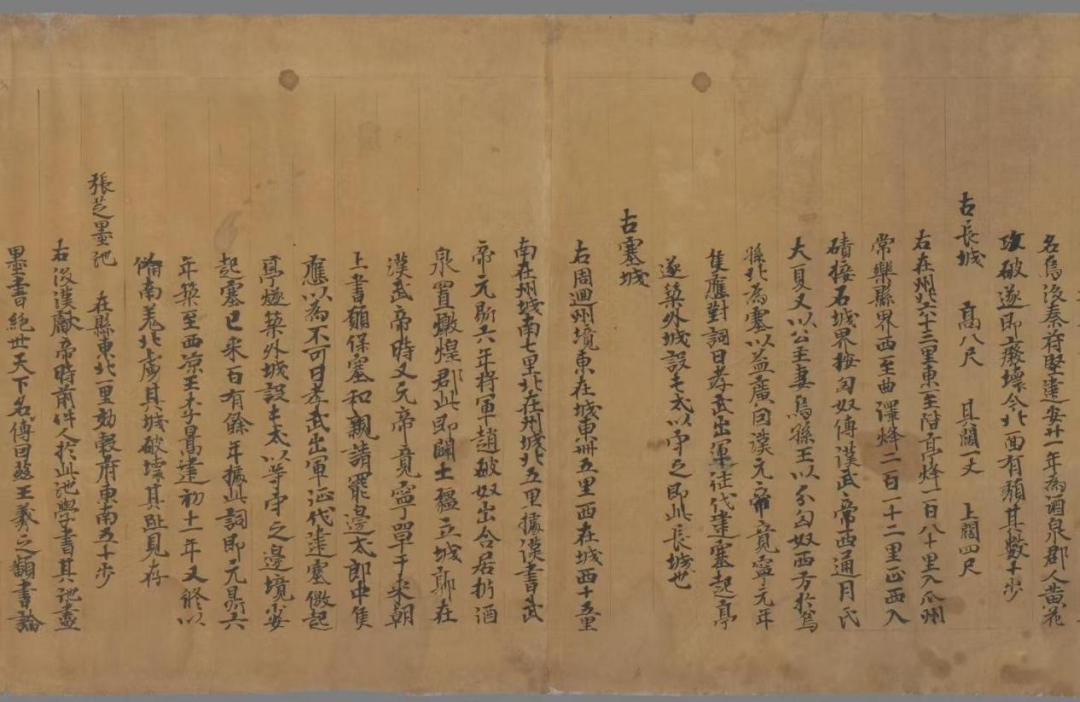 名烏後秦苻堅建安廿一年為酒泉郡人黄花
攻破遂即廢壞今北面有頹其數十步
古長城 髙八尺 其闊一丈 上闊四尺
右在州北六十三里東至階亭烽一百八十里入瓜州
常樂縣界西至曲澤烽二百一十二里正西入
磧接石城界按匈奴傳漢武帝西通月氏
大夏又以公主妻烏孫王以分匈奴西方於
孫北為塞以益廣因漢元帝竟寧元年
隻應對詞曰孝武出軍征伐建塞起亭
遂築外城設屯太以守之即此長城也
古塞城
右周迴州境東在城東卌五里西在城西十五里
南在州城南七里北在州城北五里據漢書武
帝元鼎六年將軍趙破奴出令居析酒
泉置燉煌郡此即闢土壃立城鄣在
漢武帝時又元帝竟寧單于来朝
上書願保塞和親請罷邊太郎中隻
應以為不可曰孝武出軍征伐建塞徼起
亭燧築外城設屯太以等守之邊境少安
起塞已来百有餘年據此詞即元鼎六
年築至西涼王李暠建初十一年又修以
俻南羌北虜其城破壞其趾見存
張芝墨池 在縣東北一里効糓府東南五十步
右後漢獻帝時前件人於此池學書其池盡
墨書絶世天下名傳曰王羲之䫫書論